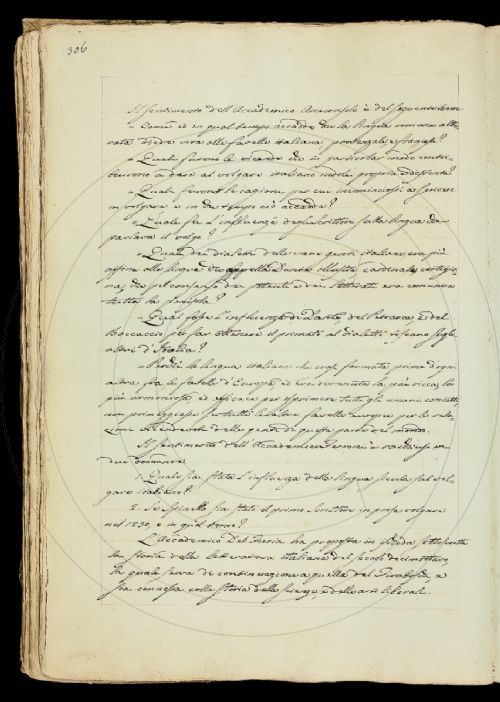 306
Il sentimento dell'Accademico Arciconsolo è del seguente tenore:
" Come e in qual tempo accadde che la lingua romana alte-
rata diede vita alle favelle italiana, provenzale, e francese?
" Quali furono le vicende che in particolar modo contri-
buirono a dare al volgare italiano indole propria e distinta?
" Quali furono le cagioni per cui incominciossi a scrivere
in volgare e in che tempo ciò accadde?
" Quale fu l'influenza degli scrittori sulla lingua che
parlava il volgo?
" Quale dei dialetti delle varie genti italiane era più
affine alla lingua che appella Dante illustre, cardinale, cortigia-
na, che pel consenso dei potenti e dei letterati era comune a
tutta la penisola?
" Qual fosse l'influenza di Dante, del Petrarca, e del
Boccaccio per far ottenere il primato al dialetto toscano sugli
altri d'Italia?
" Perchè la lingua italiana che così formata prima d'ogni
altra fra le favelle d'Europa, ed era divenuta la più ricca, la
più armoniosa, ed efficace per esprimere tutti gli umani concetti,
non primeggiasse su tutte le altre favelle Europee per le rela-
zioni vicendevoli delle genti di questa parte del mondo.
Il sentimento dell'Accademico è racchiuso in
due domande
1. Quale sia stata l'influenza della lingua sicula sul vol-
gare italiano?
2. Se Spinello sia stato il primo scrittore in prosa volgare
nel 1230, e in qual torno?
L'Accademico Del Furia ha proposto in scheda sottoscritta
la storia della letteratura italiana del secolo decimottavo,
la quale serva di continuazione a quella del Tiraboschi, e
sia connessa colla storia delle scienze, e delle arti liberali.